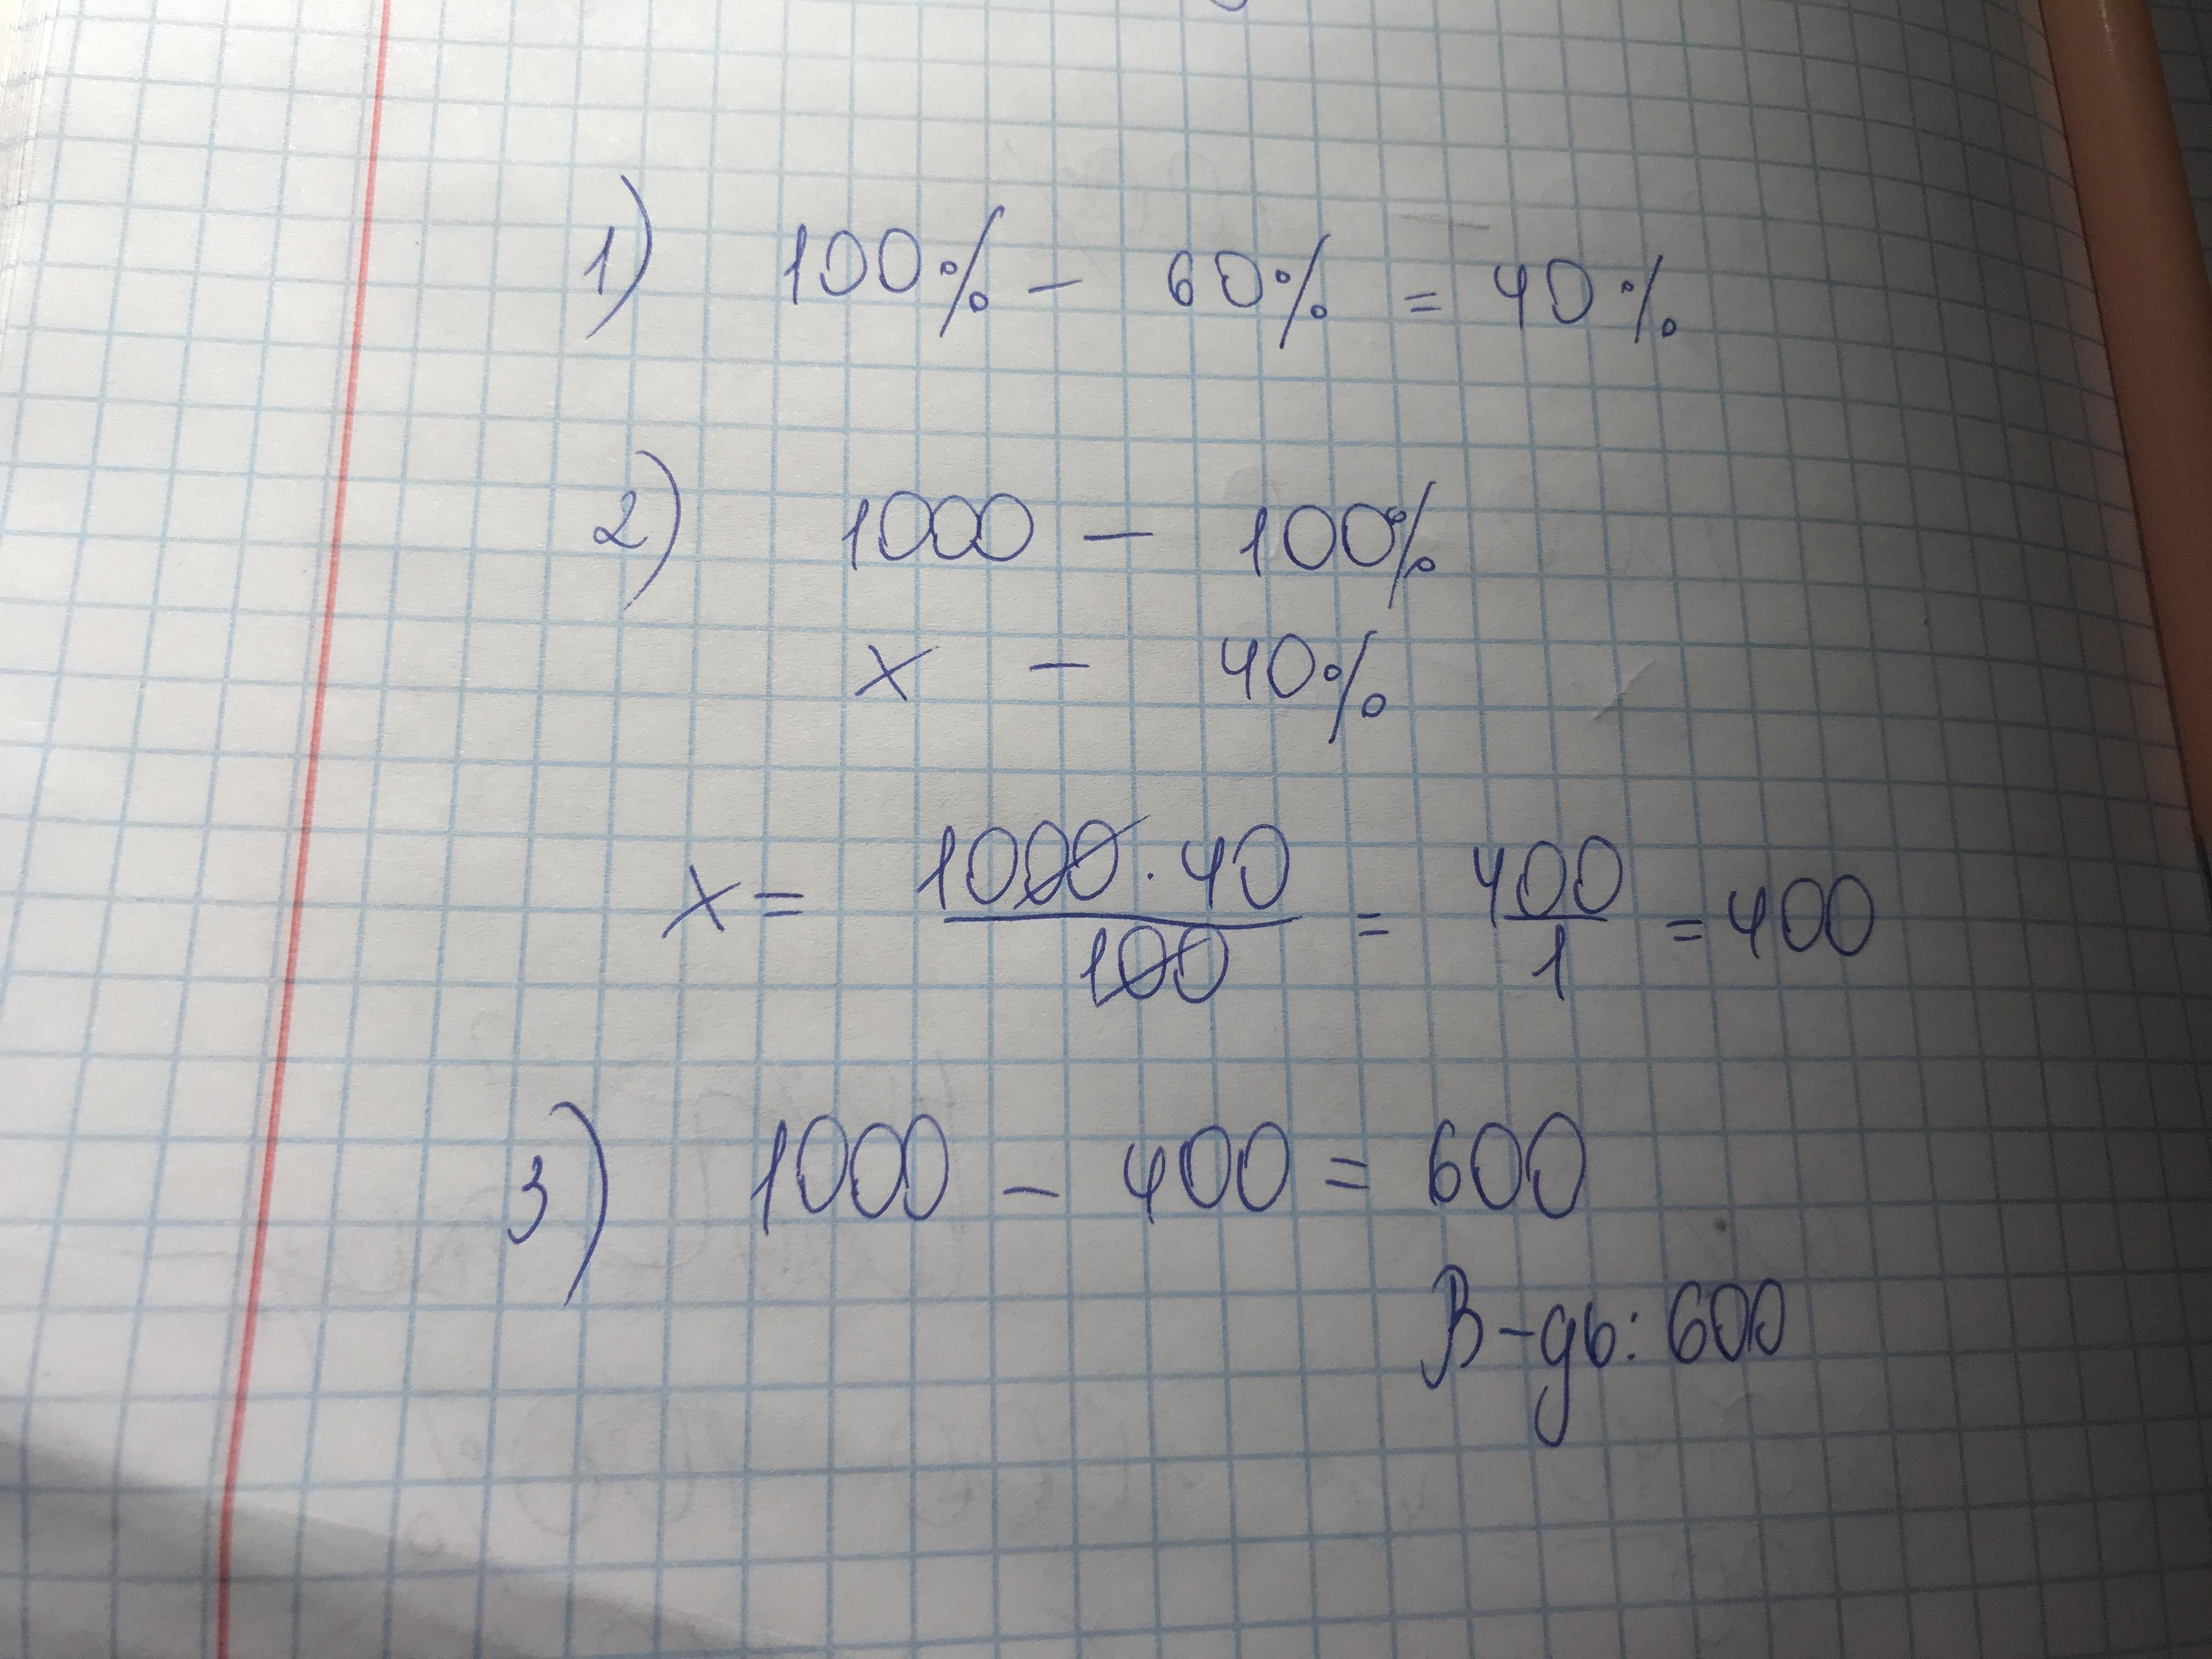 1) 100% - 60% = 40%
2) 1000 - 100%
x - 40%
x = 1000 · 40 / 100 = 400 / 1 = 400
3) 1000 - 400 = 600
В-дь: 600